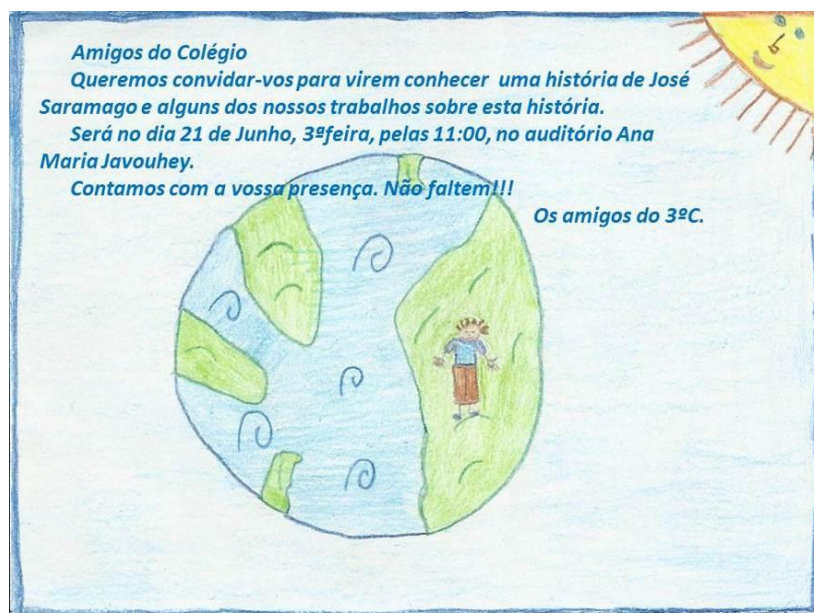 Amigos do Colégio
Queremos convidar-vos para virem conhecer uma história de José
Saramago e alguns dos nossos trabalhos sobre esta história.
Será no dia 21 de Junho, 3ªfeira, pelas 11:00, no auditório Ana
Maria Javouhey.
Contamos com a vossa presença. Não faltem!!!
Os amigos do 3ºC.